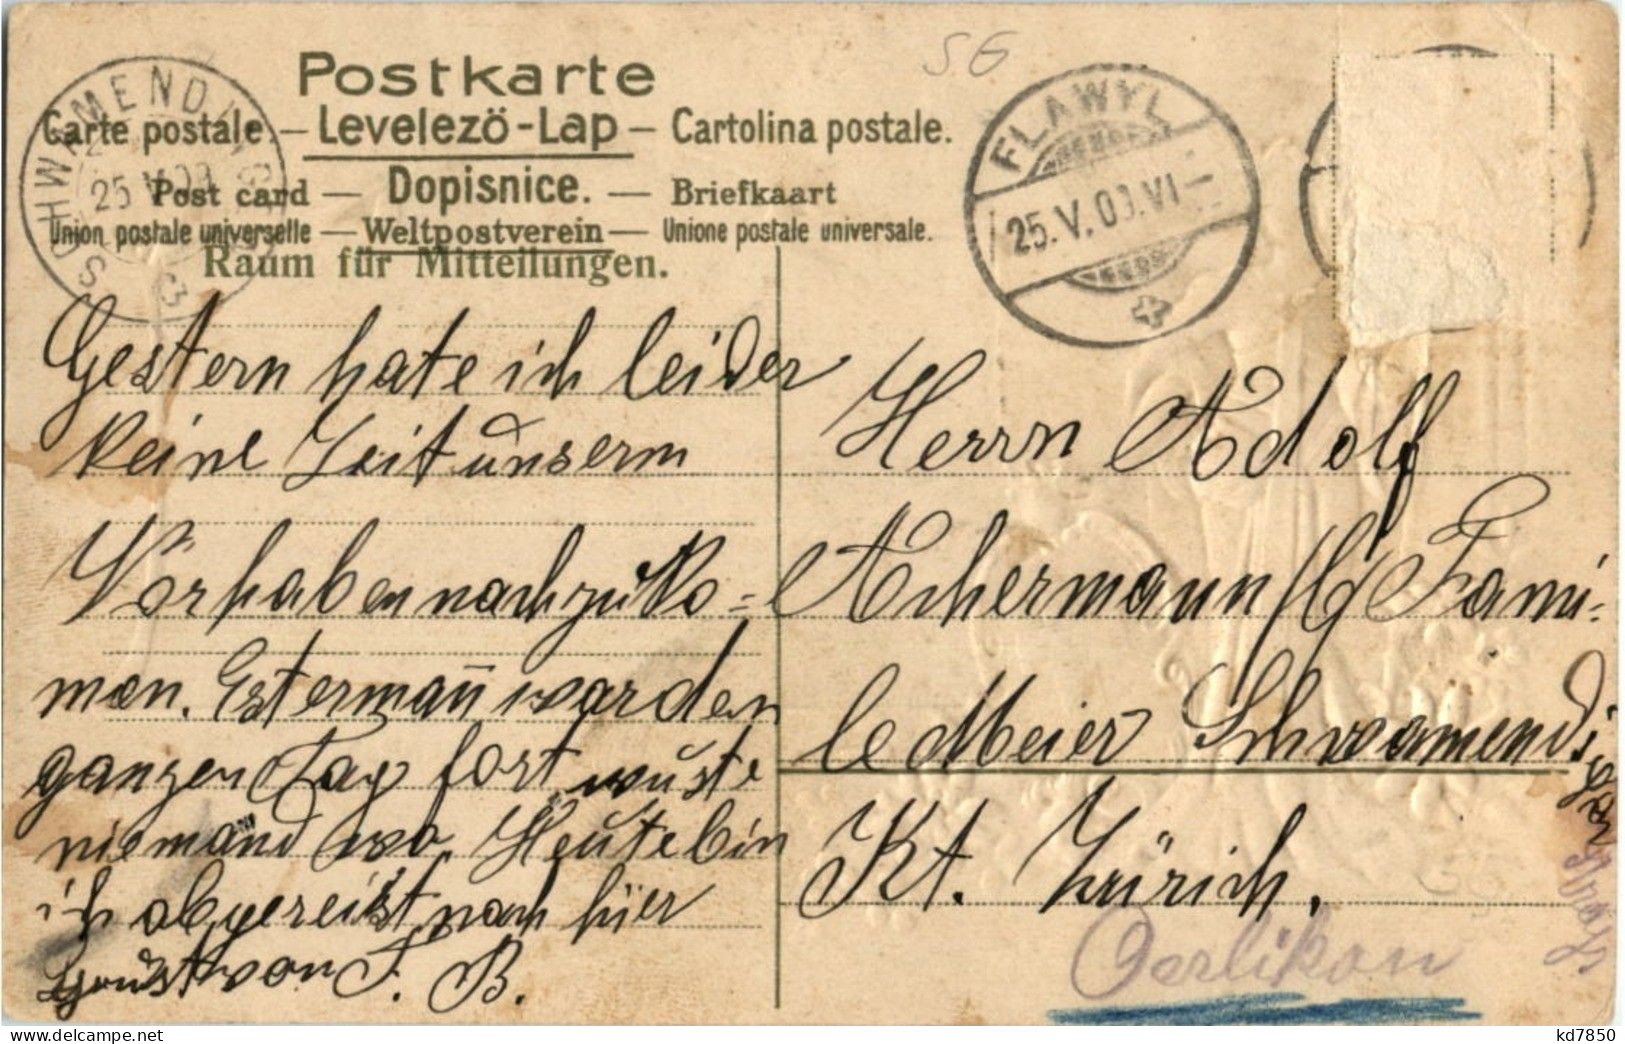 SG
Postkarte
Carte postale. — Levelező-Lap — Cartolina postale.
Post card — Dopisnice. — Briefkaart
Union postale universelle — Weltpostverein — Unione postale universale.
Raum für Mitteilungen.
SCHWAMENDINGEN
25 V 09
3
FLAWYL
25. V. 09. VI —
Gestern hate ich leider
keine Zeit unserm
Vorhaben nach zu ko =
men. Estermañ war den
ganzen Tag fort wuste
niemand wo. Heute bin
ich abgereist nach hier
Grust von F. B.
Herrn Adolf
Achermann / b/ Fami-
le Meier Schwamendi
gen
Kt. Zürich.
Oerlikon
kd7850